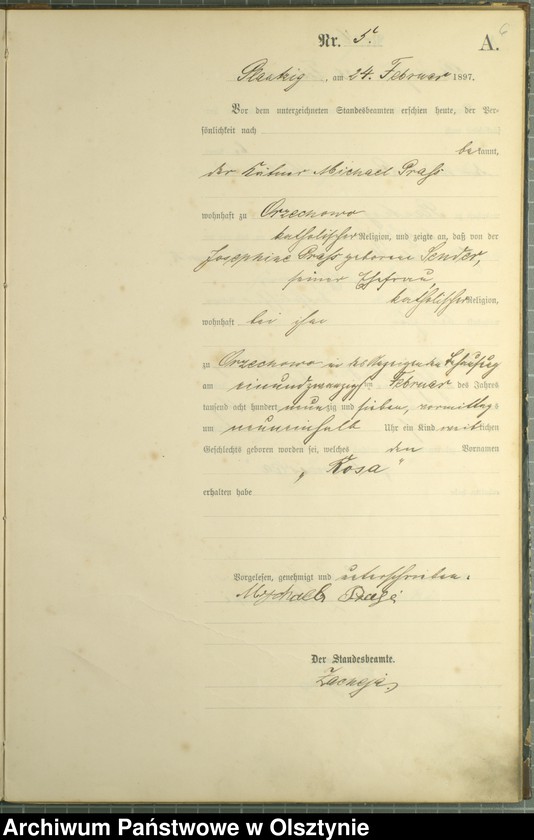 6
Nr. 5. A.
am 24. Februar 1897.
Vor dem unterzeichneten Standesbeamten erschien heute, der Per-
sönlichkeit nach
bekannt,
der Kätner Michael Praß
wohnhaft zu Orzechowo
katholischer Religion, und zeigte an, daß von der
Josephine Praß geborene Sender,
seiner Ehefrau,
katholischer Religion,
wohnhaft bei ihm
zu Orzechowo in des Anzeigenden Behausung
am einundzwanzigsten Februar des Jahres
tausend acht hundert neunzig und sieben, vormittags
um neuneinhalb Uhr ein Kind weiblichen
Geschlechts geboren worden sei, welches den Vornamen
„Rosa“
erhalten habe
Vorgelesen, genehmigt und unterschrieben.
Der Standesbeamte.
Archiwum Państwowe w Olsztynie